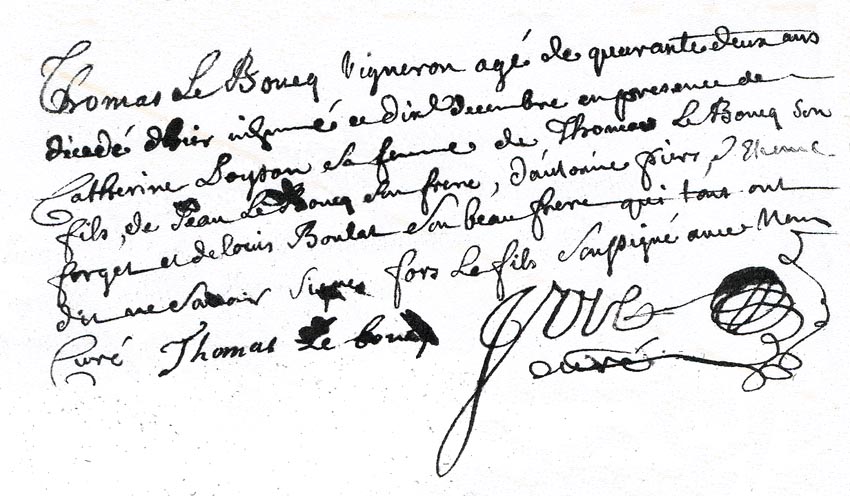 Thomas Le Boucq Vigneron agé de quarante deux ans
décédé dhier inhumé ce dix decembre en presence de
Catherine Loyson sa femme de Thomas Le Boucq son
fils, de Jean Le Boucq son frere, d'antoine piers, d'Etienne
forget et de louis Boulat son beau frere qui tous ont
dit ne savoir signer fors Le fils soussigné avec Nous
Curé Thomas Le boucq
curé